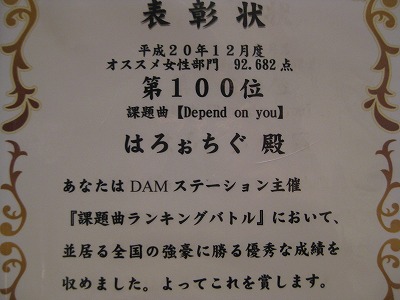 表彰状
平成20年12月度
オススメ女性部門 92.682点
第100位
課題曲【Depend on you】
はろぉちぐ 殿
あなたは DAM ステーション主催
『課題曲ランキングバトル』において、
並居る全国の強豪に勝る優秀な成績を
収めました。よってこれを賞します。